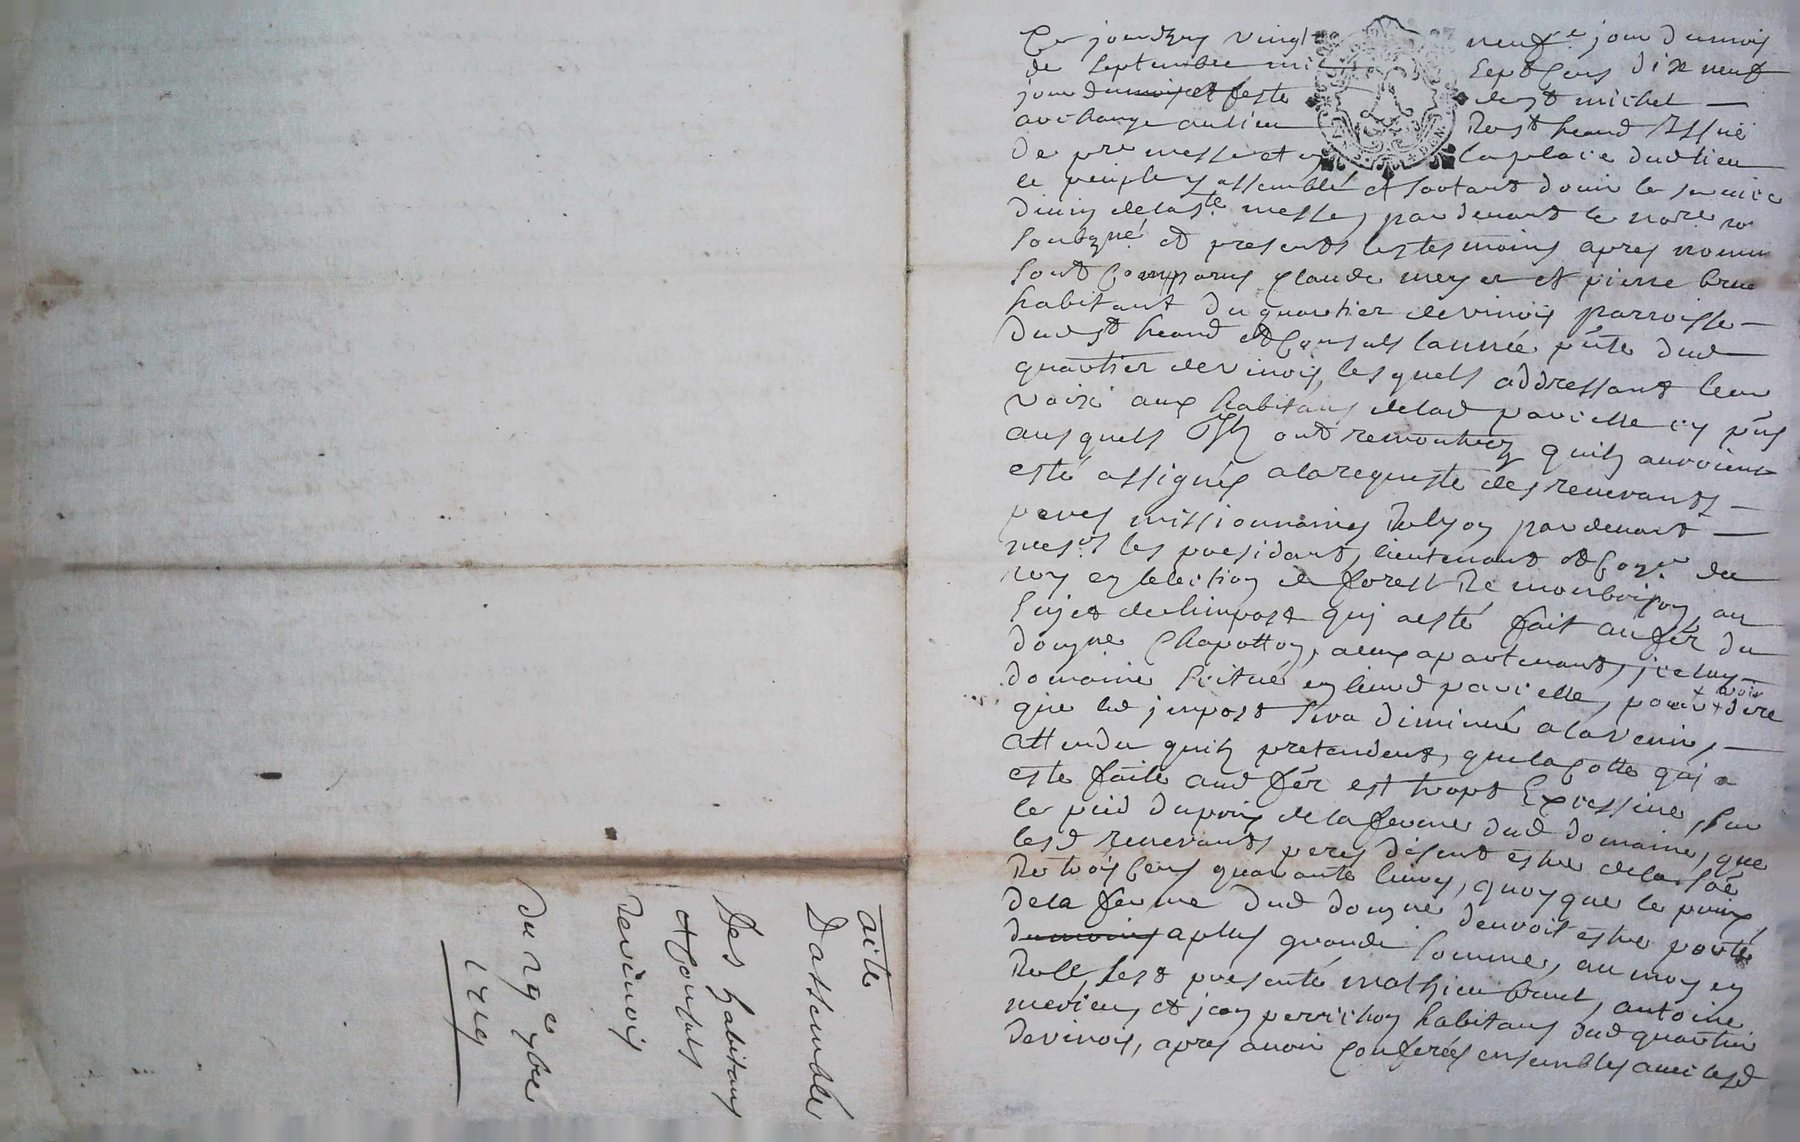 Ce jourdhuy vingt neufe jour du mois
de septembre mil sept cens dix neuf
jour du mois et feste de st michel
archange au lieu de st heand issue
de pre messe et en la place dud lieu
le peuple y assemblé et sortant douir le service
divin de la ste messe, par devant le nore ro
soubzné et presents les tesmoins apres nommes
sont comparus claude meyer et pierre brun
habitant du quartier de vinois parroisse
dud st heand et consuls lannée pnte dud
quartier de vinois, lesquels addressant leur
voix aux habitans de lad parcelle cy pns
ausquels ils ont remontrez quils auroient
esté assignés a la requeste des reverants
peres missionnaires de lyon par devant
mesrs les president, lieutenant et coners du
roy en lelection de forest de monbrison, au
sujet de limpost qui a esté fait au fer du
domyne Chapotton, a eux apartenant, iceluy
domaine scitué en lad parcelle, pour voir dire
que led impost sera diminué a lavenir,
attendu quils pretendent, que la cotte qui a
esté faite aud fer est tropt excessive, sur
le pied du prix de la ferme dud domaine, que
lesd reverants peres disent estre de la soe
de trois cens quarante livres, quoy que le prix
de la ferme dud domyne devroit estre porté
du moins a plus grande somme, au moyen
de ce, sest presenté mathieu brunt, antoine
merieu et jean perrichon habitans dud quartier
de vinois, apres avoir conferés ensembles avec lesd
acte
Dassemblé
Des habitans
et Consuls
De vinois
Du 29e 7bre
1719